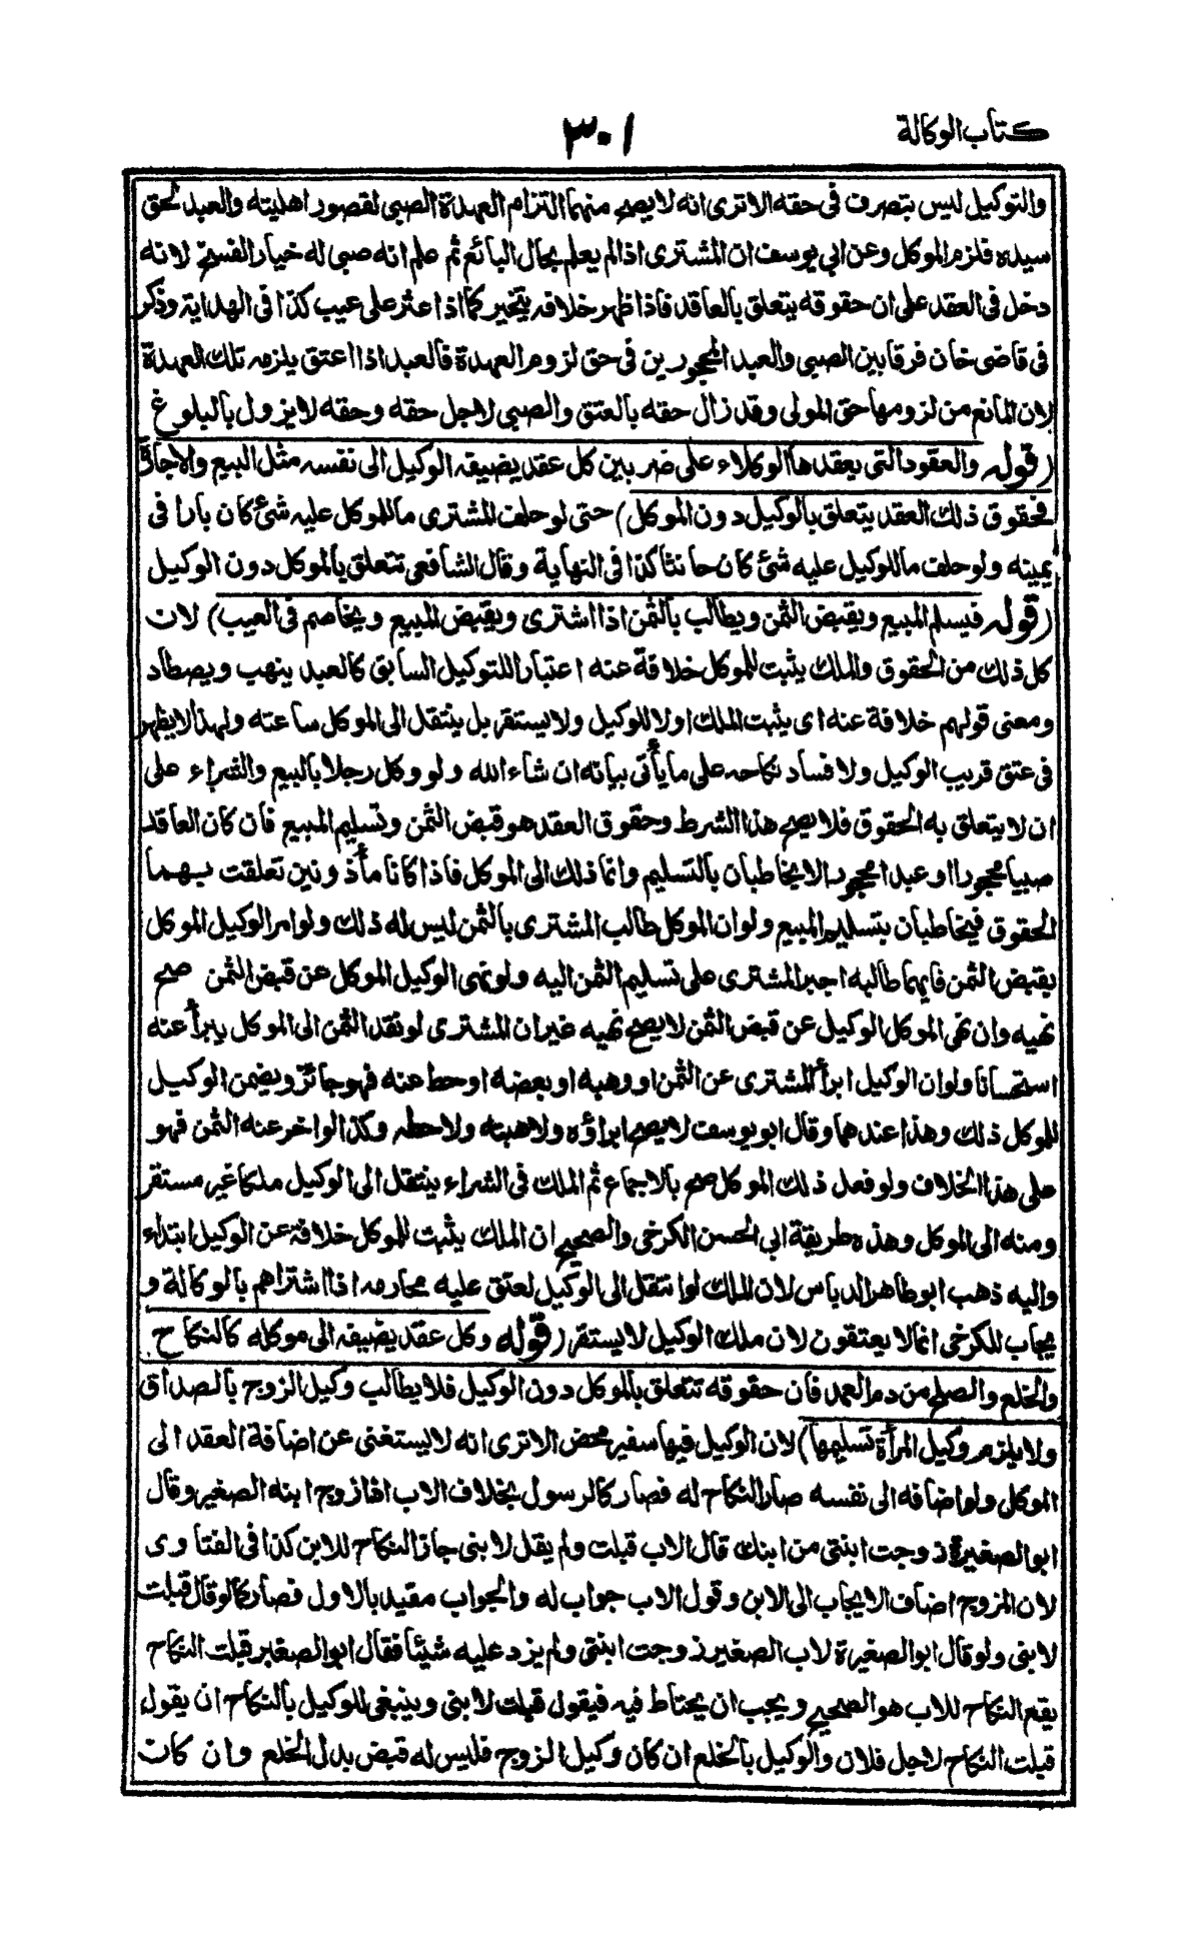 كتاب الوكالة
٣٠١
والتوكيل ليس بتصرف فى حقه الا ترى انه لا يصح منهما التزام العهدة الصبى لقصور اهليته والعبد لحق
سيده فلزم الموكل وعن ابى يوسف ان المشترى اذا لم يعلم بحال البائع ثم علم انه صبى له خيار الفسخ لانه
دخل فى العقد على ان حقوقه يتعلق بالعاقد فاذا ظهر خلافه يتخير كما اذا عثر على عيب كذا فى الهداية وذكر
فى قاضى خان فرقا بين الصبى والعبد المحجورين فى حق لزوم العهدة فالعبد اذا اعتق يلزمه تلك العهدة
لان المانع من لزومها حق المولى وقد زال حقه بالعتق والصبى لاجل حقه وحقه لا يزول بالبلوغ
(قوله والعقود التى يعقدها الوكلاء على ضربين كل عقد يضيفه الوكيل الى نفسه مثل البيع والاجارة
فحقوق ذلك العقد يتعلق بالوكيل دون الموكل) حتى لو حلف المشترى ما للموكل عليه شئ كان بارا فى
يمينه ولو حلف ما للوكيل عليه شئ كان حانثا كذا فى النهاية وقال الشافعى تتعلق بالموكل دون الوكيل
(قوله فيسلم المبيع ويقبض الثمن ويطالب بالثمن اذا اشترى ويقبض المبيع ويخاصم فى العيب) لان
كل ذلك من الحقوق والملك يثبت للموكل خلافة عنه اعتبارا للتوكيل السابق كالعبد ينهب ويصطاد
ومعنى قولهم خلافة عنه اى يثبت الملك اولا للوكيل ولا يستقر بل ينتقل الى الموكل ساعته ولهذا لا يظهر
فى عتق قريب الوكيل ولا فساد نكاحه على ما يأتى بيانه ان شاء الله ولو وكل رجلا بالبيع والشراء على
ان لا يتعلق به الحقوق فلا يصح هذا الشرط وحقوق العقد هو قبض الثمن وتسليم المبيع فان كان العاقد
صبيا محجورا او عبدا محجورا لا يخاطبان بالتسليم وانما ذلك الى الموكل فاذا كانا مأذونين تعلقت بهما
الحقوق فيخاطبان بتسليم المبيع ولو ان الموكل طالب المشترى بالثمن ليس له ذلك ولو امر الوكيل الموكل
يقبض الثمن فايهما طالبه اجبر المشترى على تسليم الثمن اليه ولو نهى الوكيل الموكل عن قبض الثمن صح
نهيه وان نهى الموكل الوكيل عن قبض الثمن لا يصح نهيه غير ان المشترى لو نقد الثمن الى الموكل يبرأ عنه
استحسانا ولو ان الوكيل ابرأ المشترى عن الثمن او وهبه او بعضه او حط عنه فهو جائز ويضمن الوكيل
للموكل ذلك وهذا عندهما وقال ابو يوسف لا يصح ابراؤه ولا هبته ولا حطه وكذا لو اخر عنه الثمن فهو
على هذا الخلاف ولو فعل ذلك الموكل صح بالاجماع ثم الملك فى الشراء ينتقل الى الوكيل ملكا غير مستقر
ومنه الى الموكل وهذه طريقة ابى الحسن الكرخى والصحيح ان الملك يثبت للموكل خلافة عن الوكيل ابتداء
واليه ذهب ابو طاهر الدباس لان الملك لو انتقل الى الوكيل لعتق عليه محارمه اذا اشتراهم بالوكالة و
يجاب للكرخى انما لا يعتقون لان ملك الوكيل لا يستقر (قوله وكل عقد يضيفه الى موكله كالنكاح
والخلع والصلح من دم العمد فان حقوقه تتعلق بالموكل دون الوكيل فلا يطالب وكيل الزوج بالصداق
ولا يلزم وكيل المرأة تسليمها) لان الوكيل فيها سفير محض الا ترى انه لا يستغنى عن اضافة العقد الى
الموكل ولو اضافه الى نفسه صار النكاح له فصار كالرسول بخلاف الاب اذا زوج ابنه الصغير وقال
ابو الصغيرة زوجت ابنتى من ابنك قال الاب قبلت ولم يقل لابنى جاز النكاح للابن كذا فى الفتاوى
لان المزوج اضاف الايجاب الى الابن وقول الاب جواب له والجواب مقيد بالاول فصار كما لو قال قبلت
لابنى ولو قال ابو الصغيرة لاب الصغير زوجت ابنتى ولم يزد عليه شيئا فقال ابو الصغير قبلت النكاح
يقع النكاح للاب هو الصحيح ويجب ان يحتاط فيه فيقول قبلت لابنى وينبغى للوكيل بالنكاح ان يقول
قبلت النكاح لاجل فلان والوكيل بالخلع ان كان وكيل الزوج فليس له قبض بدل الخلع وان كان